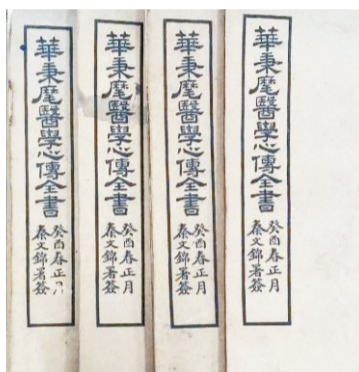 華秉麾醫學心傳全書
癸酉春正月
秦文錦署簽
華秉麾醫學心傳全書
癸酉春正月
秦文錦署簽
華秉麾醫學心傳全書
癸酉春正月
秦文錦署簽
華秉麾醫學心傳全書
癸酉春正月
秦文錦署簽